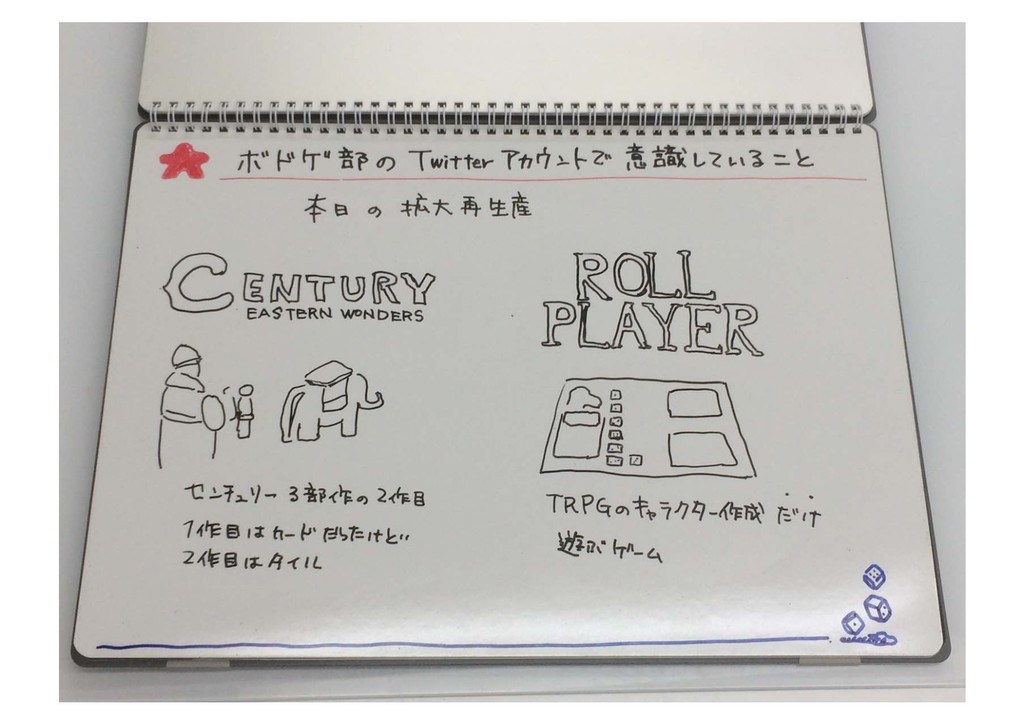 ボドゲ部のTwitterアカウントで意識していること
本日の拡大再生産
CENTURY
EASTERN WONDERS
センチュリー3部作の2作目
1作目はカードだったけど
2作目はタイル
ROLL
PLAYER
TRPGのキャラクター作成だけ
遊ぶゲーム